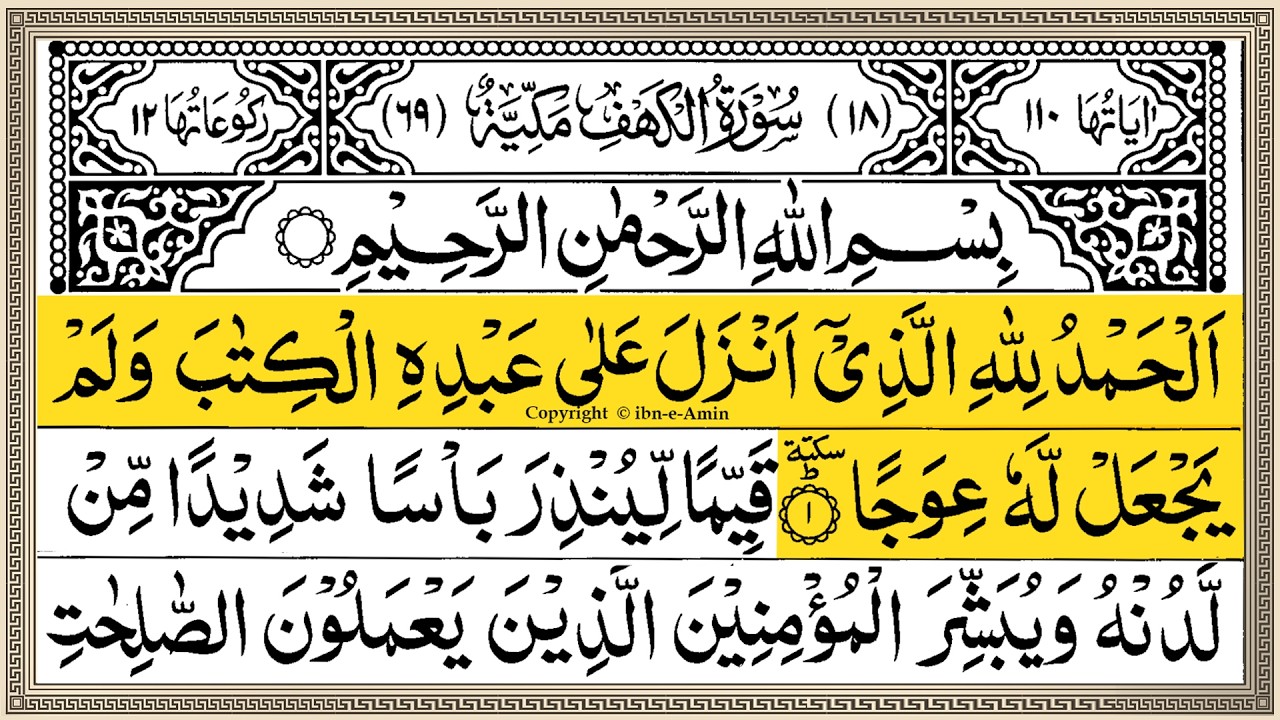 اٰيَاتُهَا ١١٠ (١٨) سُوْرَةُ الْكَهْفِ مَكِّيَّةٌ (٦٩) رُكُوْعَاتُهَا ١٢
بِسْمِ اللّٰهِ الرَّحْمٰنِ الرَّحِيْمِ
اَلْحَمْدُ لِلّٰهِ الَّذِىْٓ اَنْزَلَ عَلٰى عَبْدِهِ الْكِتٰبَ وَلَمْ
Copyright © ibn-e-Amin
يَجْعَلْ لَّهٗ عِوَجًا سكتة ط ١ قَيِّمًا لِّيُنْذِرَ بَاْسًا شَدِيْدًا مِّنْ
لَّدُنْهُ وَيُبَشِّرَ الْمُؤْمِنِيْنَ الَّذِيْنَ يَعْمَلُوْنَ الصّٰلِحٰتِ